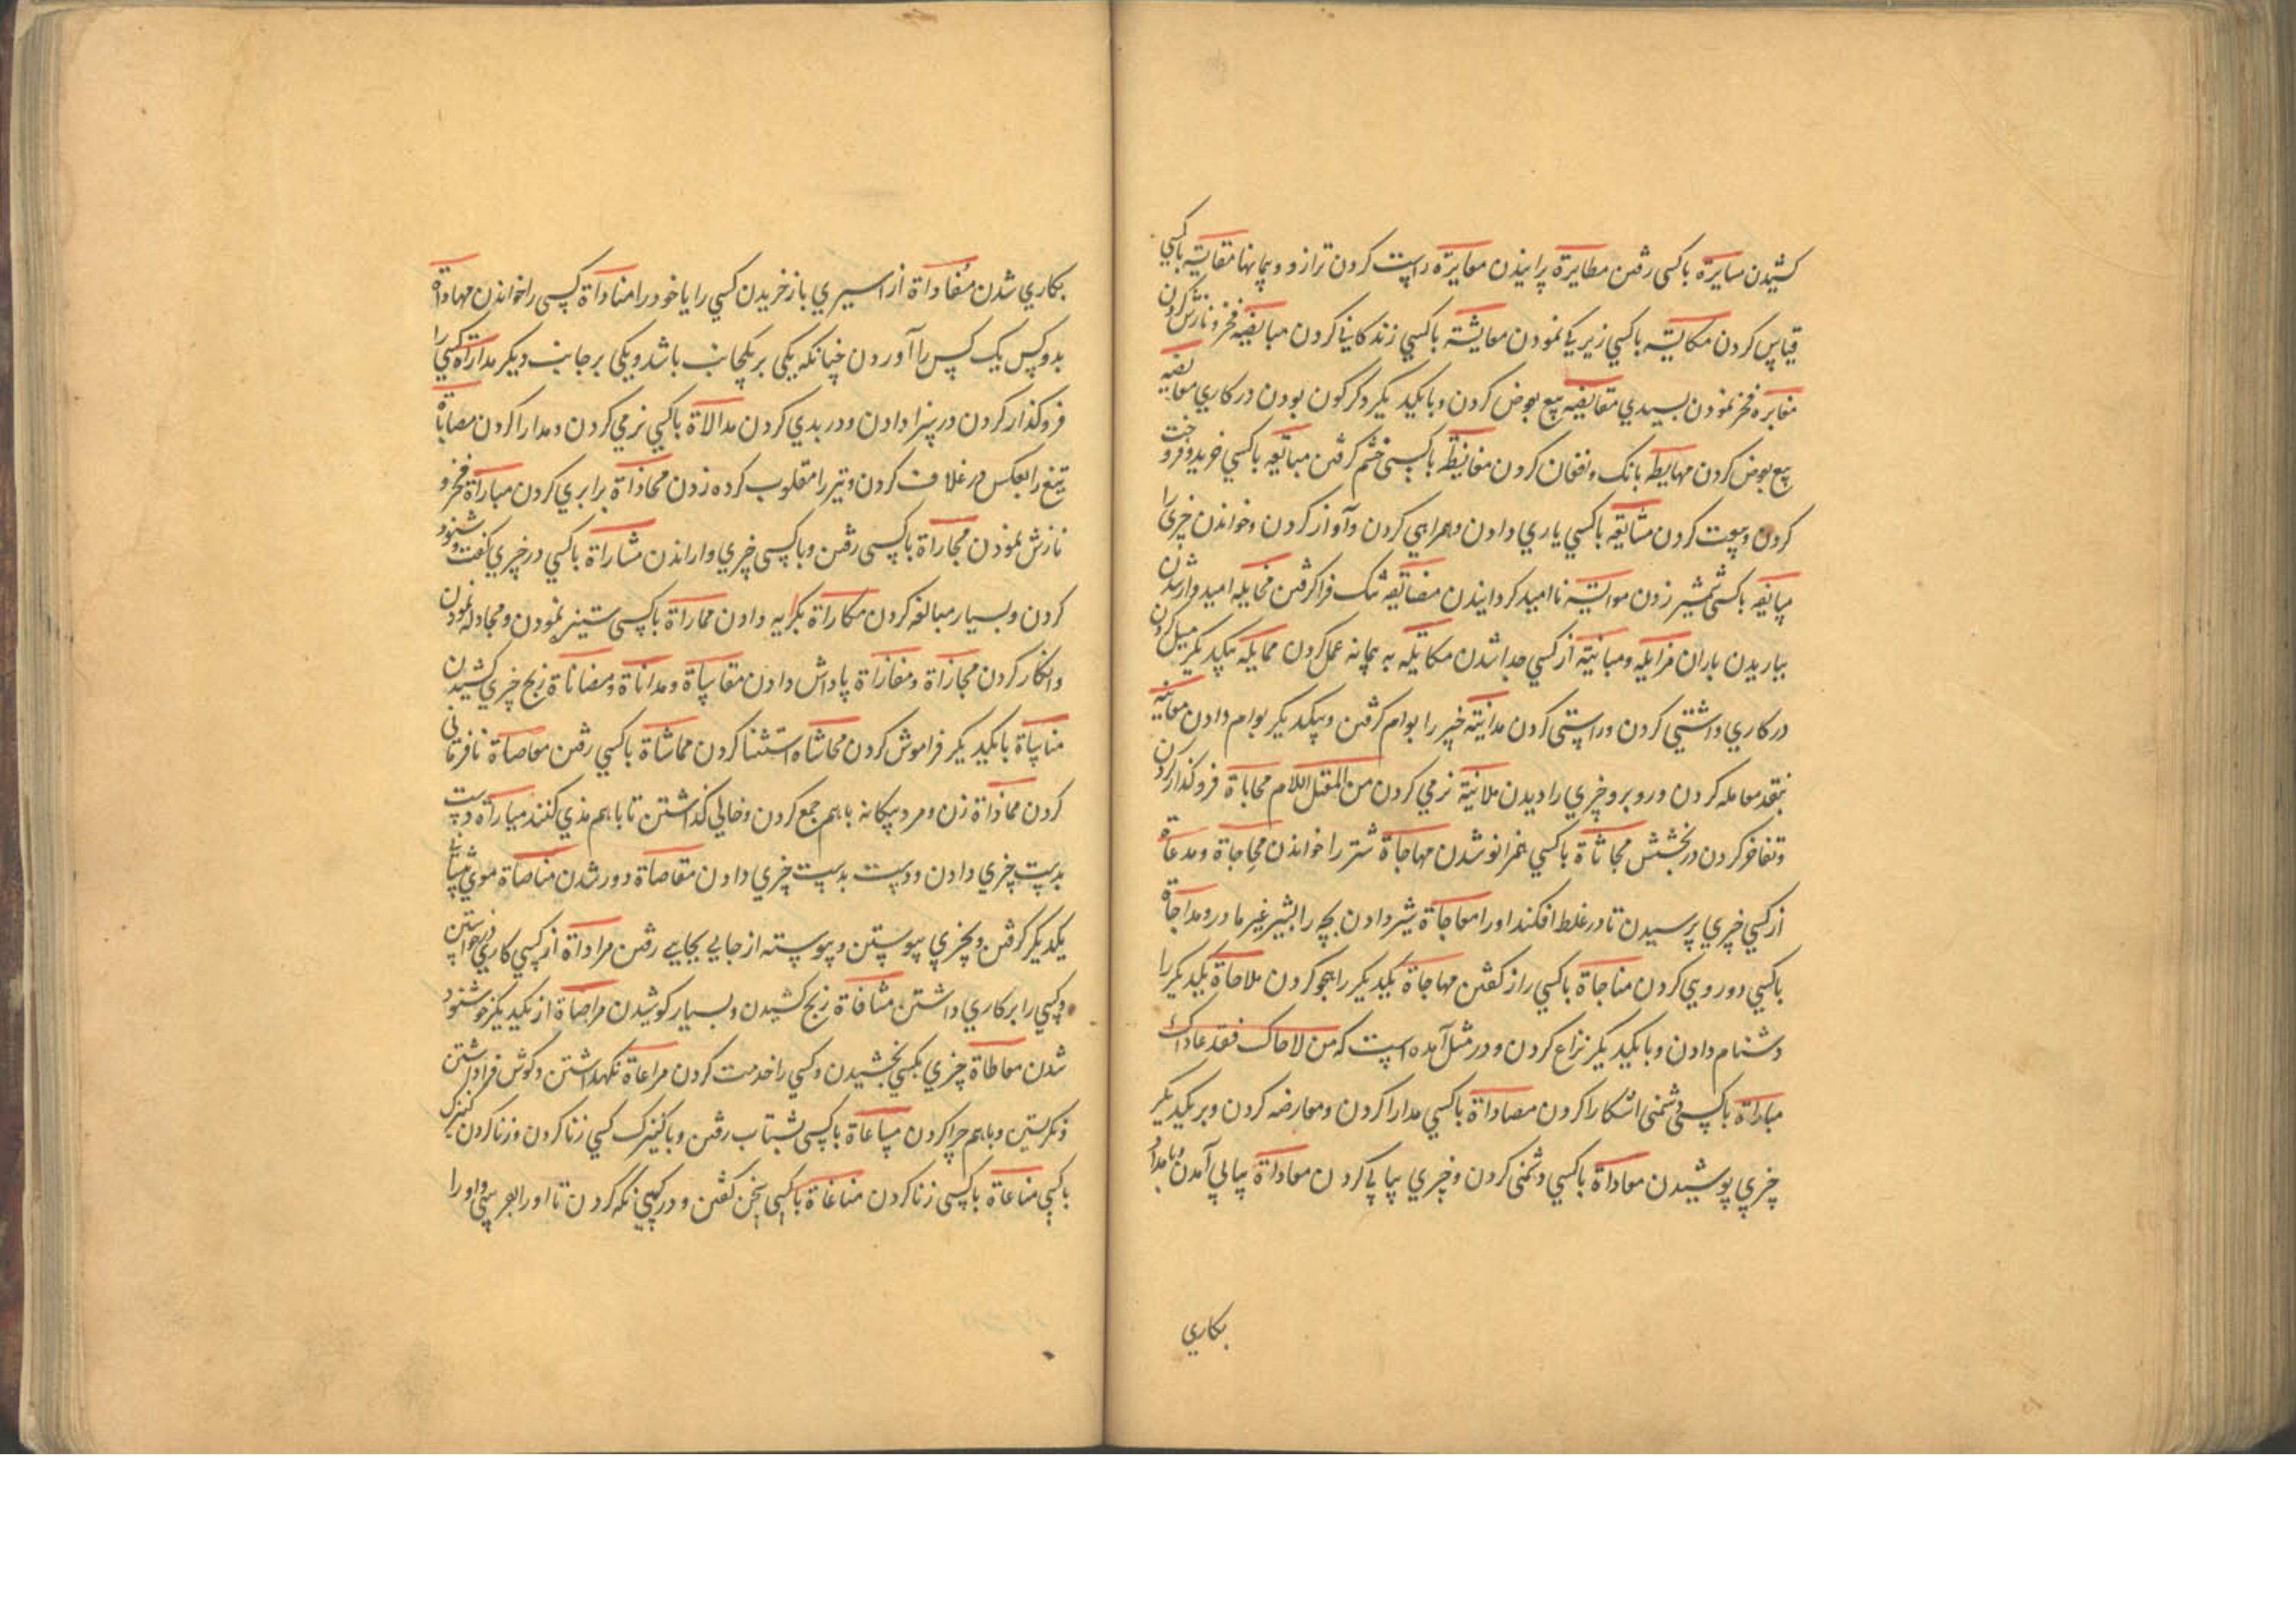 کشیدن مسایرة باکسی رفتن مطایرة پرانیدن معایرة راست کردن ترازو و پیمانها مقایسة باکسي
قیاس کردن مکایسة باکسي زیرکي نمودن معایشة باکسي زندکاني کردن مبایضه فخر و نازش کردن
مغایره فخر نمودن بسپیدي مقایضه بیع بعوض کردن و بایکدیکر دکرکون بودن در کاري معایضه
بیع بعوض کردن مهایطة بانک و فغان کردن مغایظة باکسی خشم کرفتن مبایعه باکسي خرید و فروخت
کردن و بیعت کردن مشایعة باکسي یاري دادن و همراهي کردن و آواز کردن و خواندن چیزي را
مسایفه باکسی شمشیر زدن موایسة ناامید کردانیدن مضایقه تنک فراکرفتن مخایله امیدوار شدن
بباریدن باران مزایله و مباینة از کسي جدا شدن مکایله به پیمانه عمل کردن ممایله بیکدیکر میل کردن
در کاري و آشتي کردن و راستی کردن مداینة چیز را بوام کرفتن و بیکدیکر بوام دادن معاینه
بنقد معامله کردن و روبرو چیزي را دیدن ملاینة نرمي کردن من المعتل اللام محاباة فروکذار کردن
و تفاخر کردن در بخشش مجاثاة باکسي همزانو شدن مهاجاة شتر را خواندن محاجاة و مدعاة
از کسي چیزي پرسیدن تا در غلط افکند او را معاجاة شیر دادن بچه را بشیر غیر مادر و مداجاة
باکسي دورویي کردن مناجاة باکسي راز کفتن مهاجاة یکدیکر را هجو کردن ملاحاة یکدیکر را
دشنام دادن و بایکدیکر نزاع کردن و در مثل آمده است که من لاحاک فقد عاداک
مباداة باکسی دشمنی آشکارا کردن مصاداة باکسي مدارا کردن و معارضه کردن و بر یکدیکر
چیزي پوشیدن معاداة باکسي دشمنی کردن و چیزي پیاپي کردن معاداة پیاپي آمدن
بکاري
بکاري شدن مفاداة از اسیري باز خریدن کسي را یا خود را مناداة کسی را خواندن مهاداة
بدو کس یک کس را آوردن چنانکه یکي بر یکجانب باشد و یکي بر جانب دیکر مداراة کسي را
فروکذار کردن در سزا دادن و در بدي کردن مدالاة باکسي نرمي کردن و مدارا کردن مصاباة
تیغ را بعکس در غلاف کردن و تیر را مقلوب کرده زدن محاذاة برابري کردن مباراة فخر و
نازش نمودن مجاراة باکسی رفتن و باکسی چیزي واراندن مشاراة باکسي در چیزي کفت و شنود
کردن و بسیار مبالغه کردن مکاراة بکرایه دادن مماراة باکسی ستیزه نمودن و مجادله نمودن
و انکار کردن مجازاة و مغازاة پاداش دادن مقاساة و مداناة و مضاناة رنج چیزي کشیدن
مناساة بایکدیکر فراموش کردن محاشاه استثنا کردن مماشاة باکسي رفتن معاصاة نافرمانی
کردن مماذاة زن و مرد بیکانه باهم جمع کردن و خالي کذاشتن تا باهم مذي کنند مباراة دست
بدست چیزي دادن و دست بدست چیزي دادن مقاصاة دور شدن مناصاة موي پیشاني
یکدیکر کرفتن و بچیزي پیوستن و پیوسته از جایي بجایي رفتن مراداة از کسي کاري درخواستن
و کسي را بر کاري داشتن مشاقاة رنج کشیدن و بسیار کوشیدن مراضاة از یکدیکر خوشنود
شدن معاطاة چیزي بکسي بخشیدن و کسي را خدمت کردن مراعاة نکهداشتن و کوش فراداشتن
و نکریستن و باهم چرا کردن مساعاة باکسی بشتاب رفتن و با کنیزک کسي زنا کردن و زنا کردن کنیزک
باکسي مناعاة باکسی زنا کردن مناغاة باکسي سخن کفتن و در کسي نکه کردن تا او را